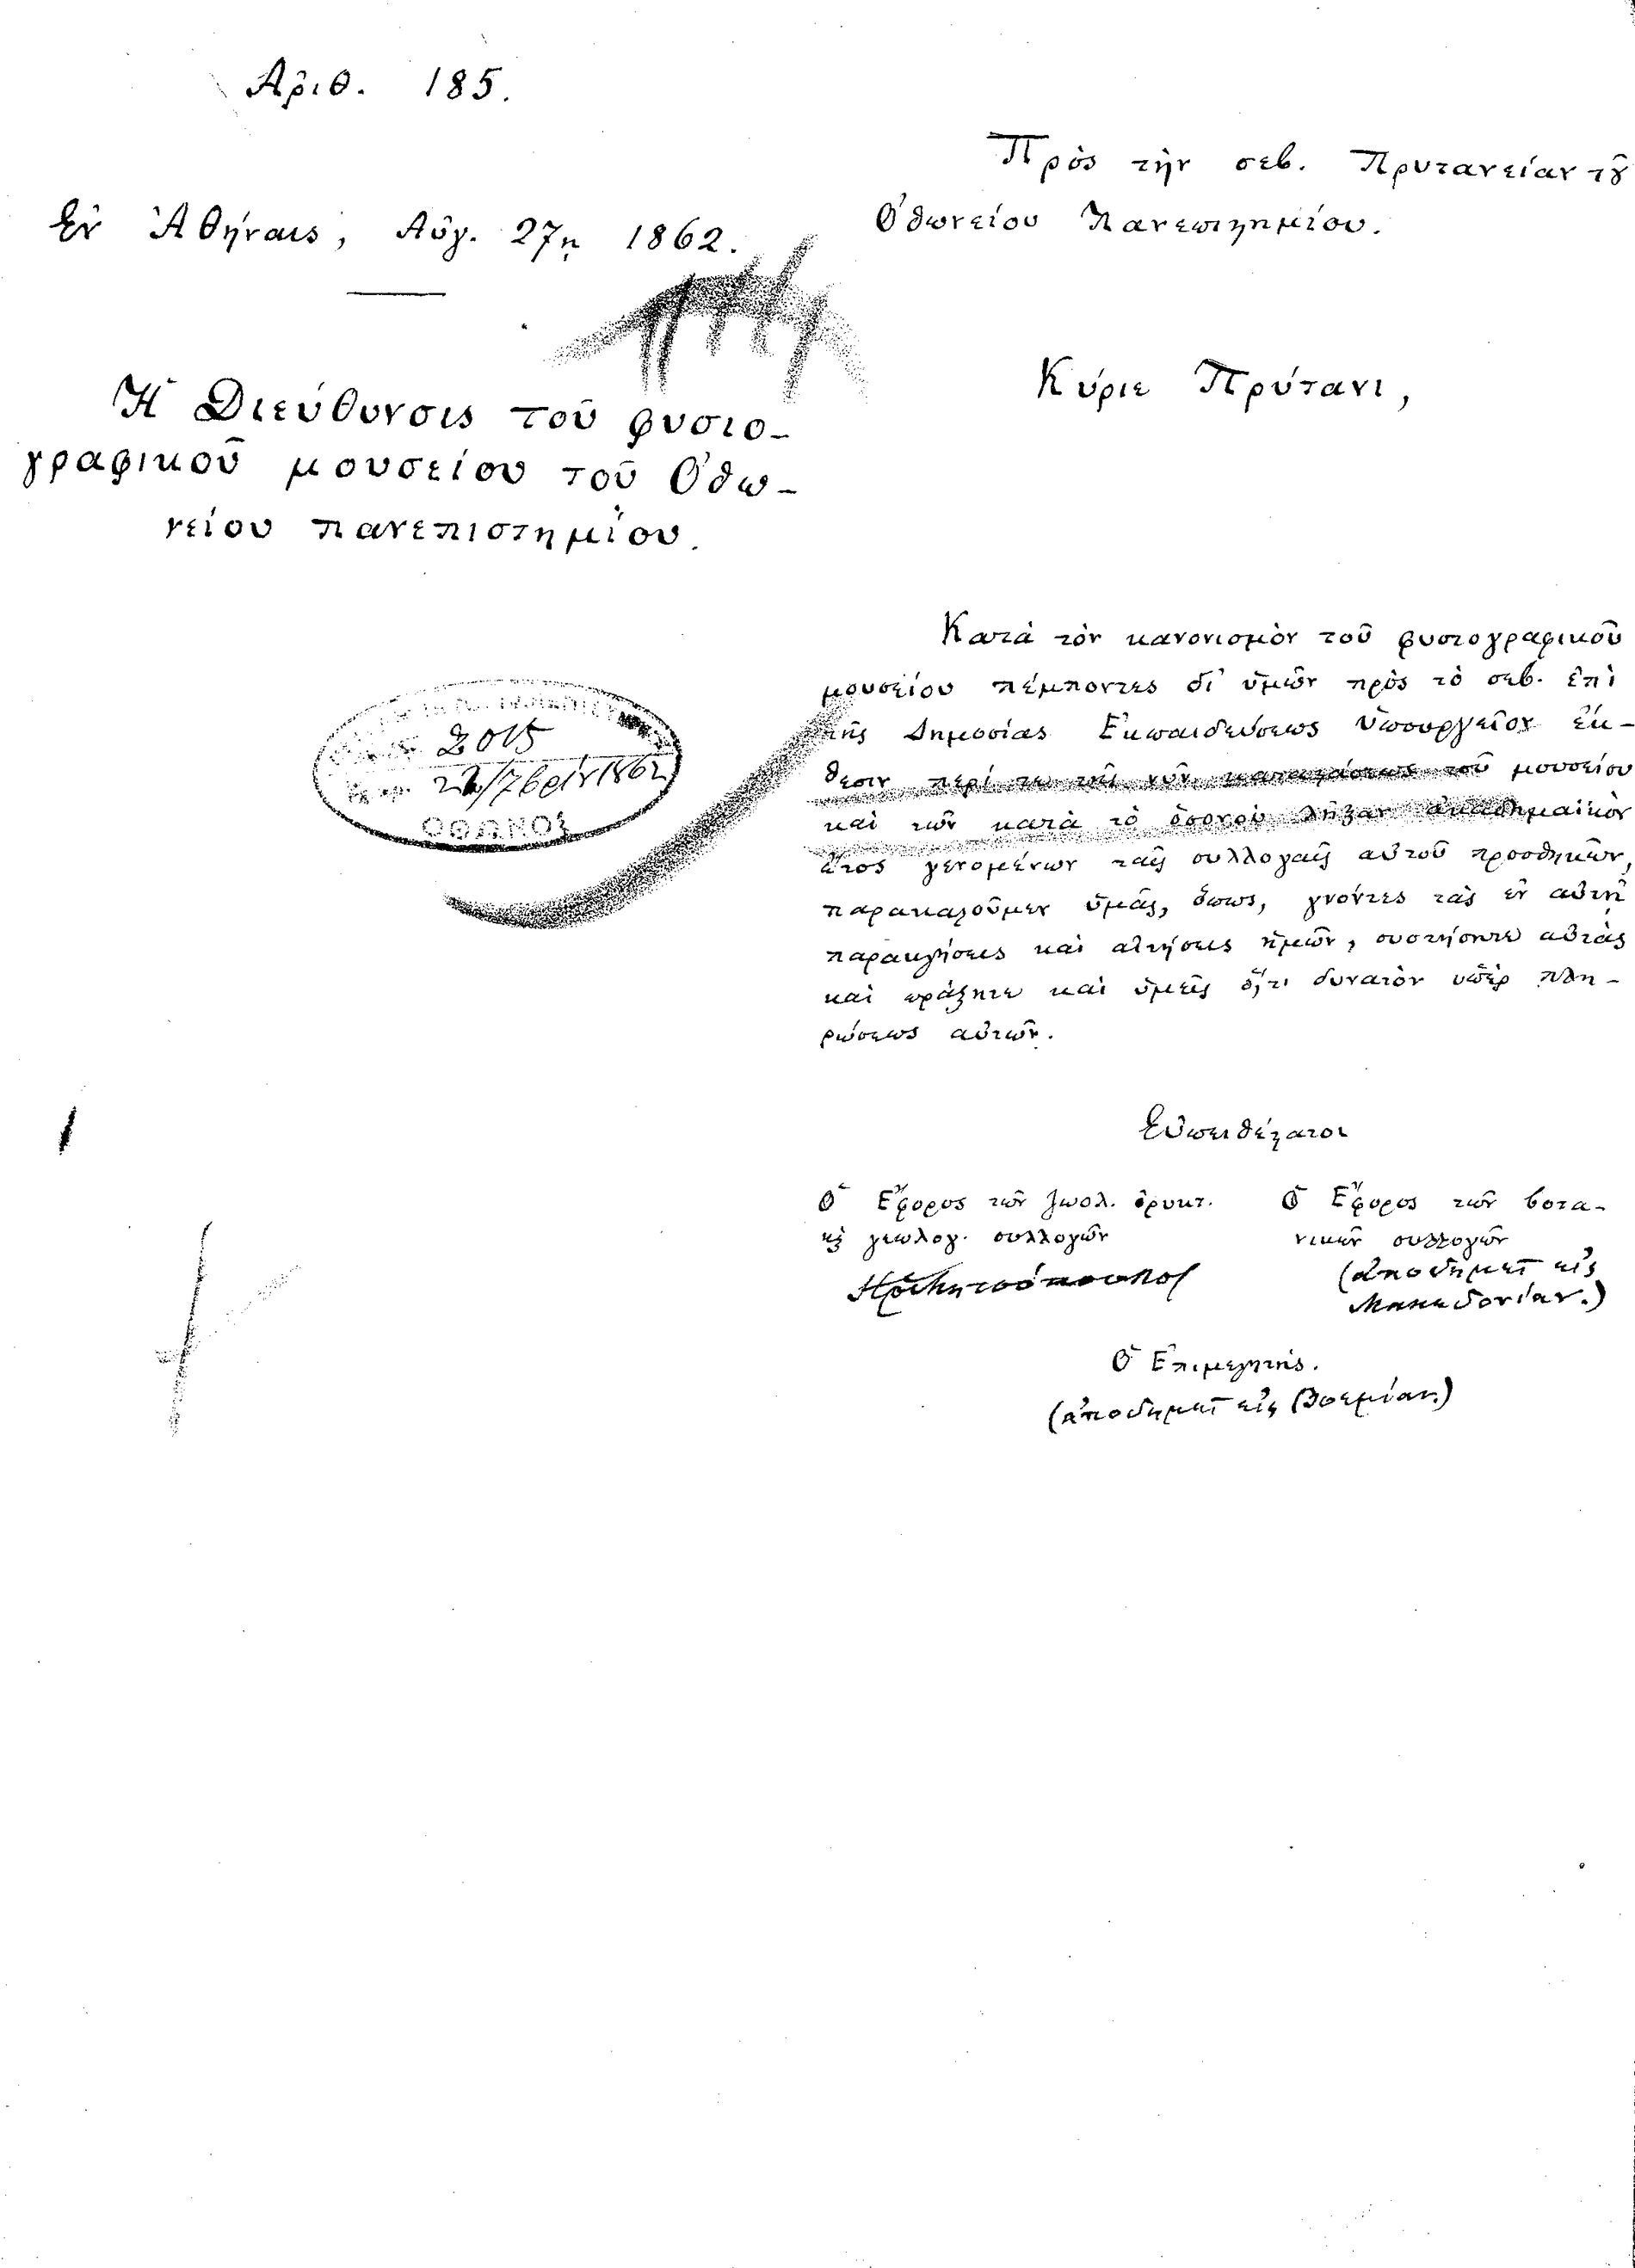 Ἀριθ. 185.
Ἐν Ἀθήναις, Αὐγ. 27ῃ 1862.
Ἡ Διεύθυνσις τοῦ φυσιο-
γραφικοῦ μουσείου τοῦ Ὀθω-
νείου πανεπιστημίου.
Πρὸς τὴν σεβ. Πρυτανείαν τȣ͂
Ὀθωνείου Πανεπιϛημίου.
Κύριε Πρύτανι,
2015
7βρίȣ 1862
ΟΘΩΝΟΣ
Κατὰ τὸν κανονισμὸν τοῦ φυσιογραφικοῦ
μουσείου πέμποντες δι' ὑμῶν πρὸς τὸ σεβ. ἐπὶ
τῆς Δημοσίας Ἐκπαιδεύσεως Ὑπουργεῖον ἔκ-
θεσιν περί τε τῆς νῦν καταϛάσεως τοῦ μουσείου
καὶ τῶν κατὰ τὸ ὁσονοὺ λῆξαν ἀκαδημαϊκὸν
ἔτος γενομένων ταῖς συλλογαῖς αὐτοῦ προσθηκῶν,
παρακαλοῦμεν ὑμᾶς, ὅπως, γνόντες τὰς ἐν αὐτῇ
παρακλήσεις καὶ αἰτήσεις ἡμῶν, συστήσητε αὐτὰς
καὶ πράξητε καὶ ὑμεῖς ὅ,τι δυνατὸν ὑπὲρ πλη-
ρώσεως αὐτῶν.
Εὐπειθέϛατοι
Ὁ Ἔφορος τῶν ζωολ. ὀρυκτ.
κ̀ γεωλογ. συλλογῶν
Ὁ Ἔφορος τῶν βοτα-
νικῶν συλλογῶν
(ἀποδημεῖ εἰς
Μακεδονίαν.)
Ὁ Ἐπιμελητής.
(ἀποδημεῖ εἰς Βοεμίαν.)